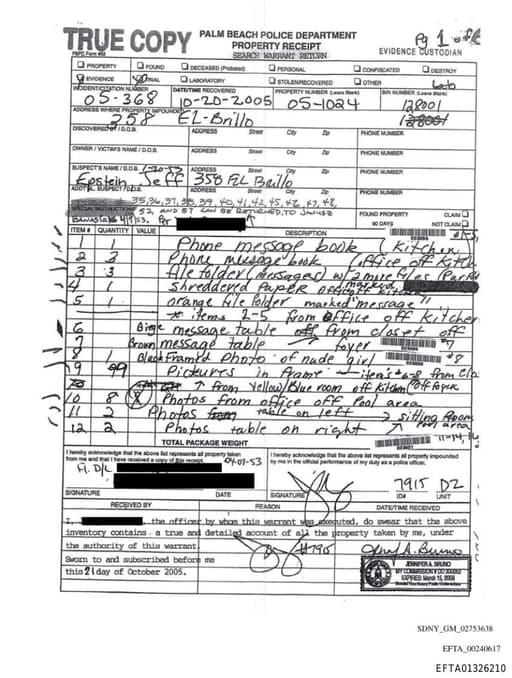 TRUE COPY
PBPD Form #68
PALM BEACH POLICE DEPARTMENT
PROPERTY RECEIPT
SEARCH WARRANT RETURN
Pg 1 of
EVIDENCE CUSTODIAN
PROPERTY FOUND DECEASED (Probated) PERSONAL CONFISCATED DESTROY
EVIDENCE TRIAL LABORATORY STOLEN/RECOVERED OTHER
INCIDENT/CITATION NUMBER DATE/TIME RECOVERED PROPERTY NUMBER (Leave Blank) BIN NUMBER (Leave Blank)
05-368 10-20-2005 05-1024 128001
ADDRESS WHERE PROPERTY IMPOUNDED
258 EL-Brillo 128001
DISCOVERED BY / D.O.B. ADDRESS Street City Zip PHONE NUMBER
OWNER / VICTIM'S NAME / D.O.B. ADDRESS Street City Zip PHONE NUMBER
SUSPECT'S NAME / D.O.B. 1-20-53 ADDRESS Street City Zip PHONE NUMBER
Epstein Jeff 358 EL Brillo
ADDT'L SUSPECT / D.O.B. ADDRESS Street City Zip PHONE NUMBER
35,36,37,38,39,40,41,42,45,46,47,48,
SPECIAL INSTRUCTIONS 52 AND 57 CAN BE RETURNED TO FOUND PROPERTY CLAIM
90 DAYS NOT CLAIM
ITEM # QUANTITY VALUE DESCRIPTION
1 1 Phone message book (Kitchen
2 3 Phone message book (office off Kitch
3 3 file folder (messages) w/ 2 more files
4 1 Shreddered Paper office off Kitchen
5 1 orange file folder marked "message"
* items 2-5 from office off Kitchen
6 Bige message table from closet off
7 Brown message table foyer #7
8 1 Black framed Photo of nude girl #8
9 Pickures in frame items #6-8 from
from Yellow/Blue room off Kitchen (off foyer
10 8 Photos from office off Pool area
11 2 Photos table on left > sitting Room
12 2 Photos table on right Pool area
11-14,
TOTAL PACKAGE WEIGHT
I hereby acknowledge that the above list represents all property taken
from me and that I have received a copy of this receipt.
I hereby acknowledge that the above list represents all property impounded
by me in the official performance of my duty as a police officer.
Fl. D/L
7915 D2
SIGNATURE DATE SIGNATURE ID# UNIT
RECEIVED BY REASON DATE/TIME RECEIVED
I, , the officer by whom this warrant was executed, do swear that the above
inventory contains a true and detailed account of all the property taken by me, under
the authority of this warrant.
#7915
Sworn to and subscribed before me
this 21 day of October 2005.
JENNIFER A. BRUNO
EXPIRES: March 15, 2008
SDNY_GM_02753638
EFTA_00240617
EFTA01326210